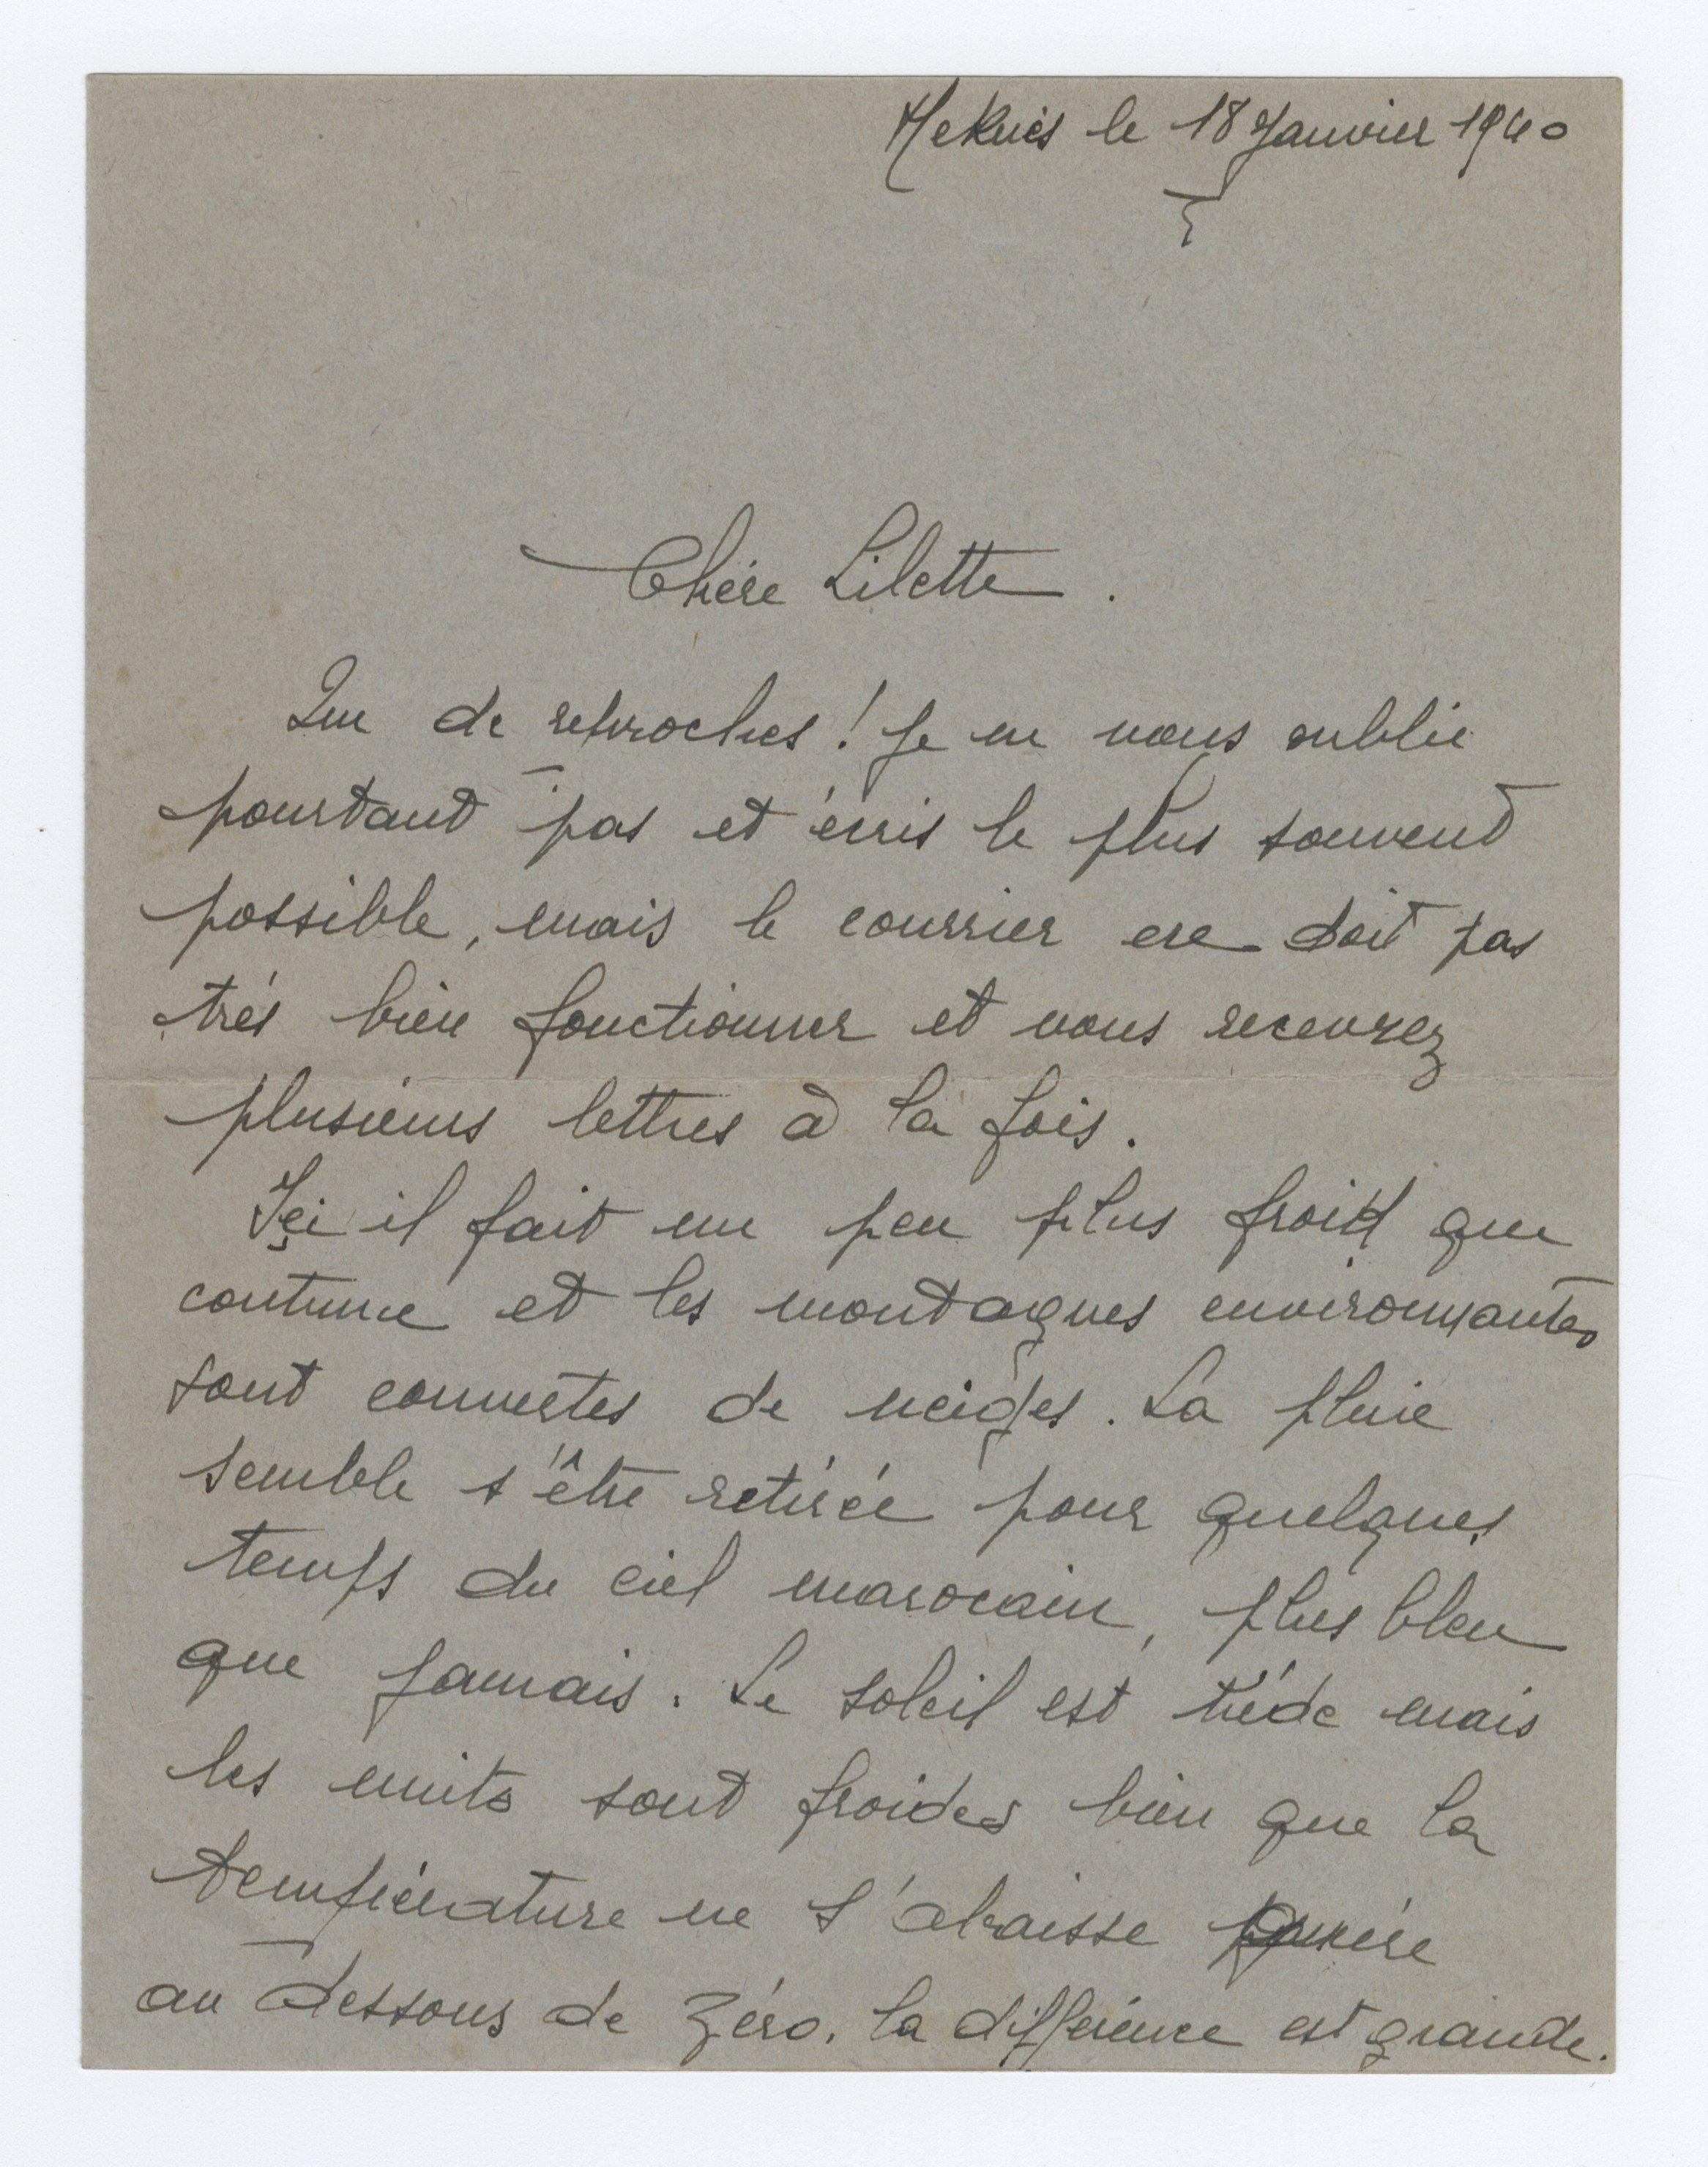 Meknès le 18 Janvier 1940
Chère Lilette.
Que de reproches ! Je ne vous oublie
pourtant pas et écris le plus souvent
possible, mais le courrier ne doit pas
très bien fonctionner et vous recevrez
plusieurs lettres à la fois.
Içi il fait un peu plus froid que
coutume et les montagnes environnantes
sont couvertes de neiges. La pluie
semble s'être retirée pour quelques
temps du ciel marocain, plus bleu
que jamais. Le soleil est tiède mais
les nuits sont froides bien que la
température ne s'abaisse guère
au dessous de Zéro. la différence est grande.